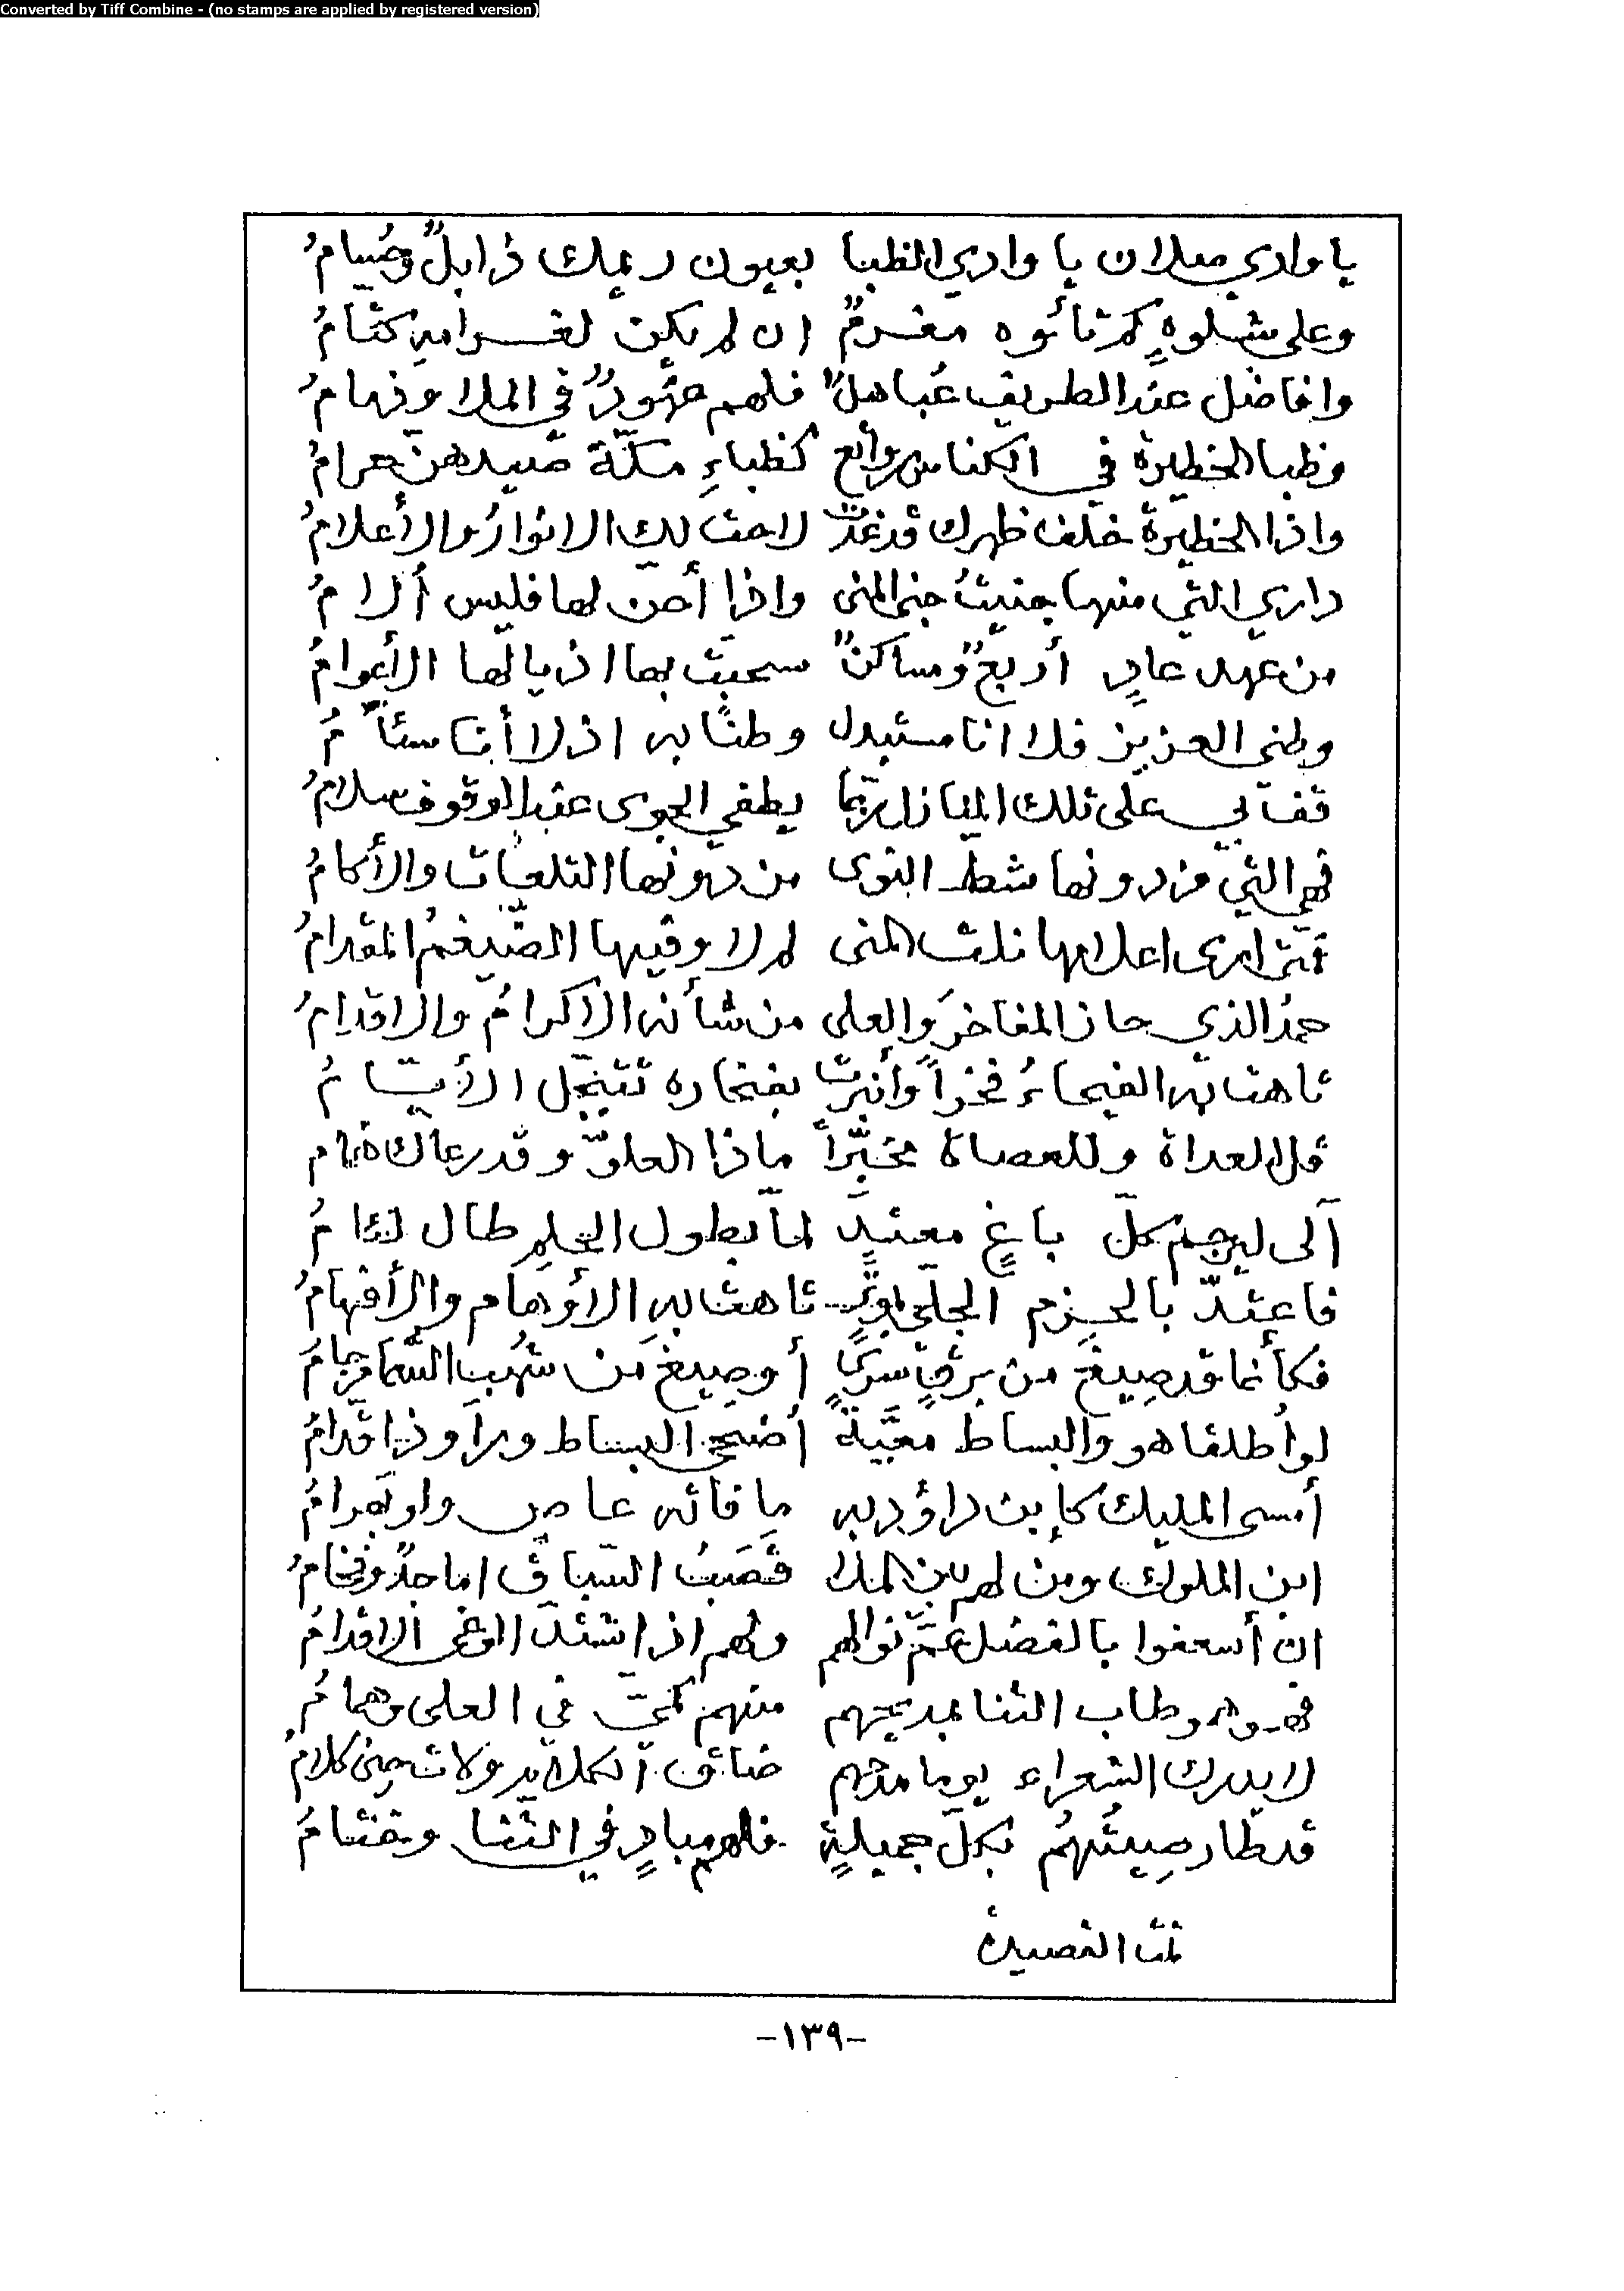 Converted by Tiff Combine - (no stamps are applied by registered version)
يا وادي ميلان يا وادي الظبا بعيون ريمك ذابلٌ وحسامُ
وعلى كم تائوه مغرمٌ ان لم يكن لغرامهِ كتامُ
وافاضل عند الطريف عباهلٌ فلهم جهودٌ في الملا وفهامُ
وظبا الخطيرة في الكناس روائع كظباءِ مكّة صيدهن حرامُ
واذا الخطيرة خلف ظهرك قد غدت لاحت لك الانوار والأعلامُ
داري التي منها جنيتُ جنى المنى واذا أحن لها فليس ألامُ
من عهد عادٍ أربعٌ ومساكنٌ سحبت بها اذيالها الأعوامُ
وطني العزيز فلا انا مستبدل وطنًا به اذ لا أنا سئامُ
قف بي على تلك المنازل ربما يطفي الجوى عند الوقوف سلامُ
فهي التي من دونها شط النوى من دونها التلعات والأكامُ
فمتى ارى اعلامها نلت المنى لم لا وفيها الضيغمُ المقدامُ
حمدُ الذي حاز المفاخرَ والعلى من شأنه الاكرامُ والاقدامُ
تاهت به الفيحاءُ فخراً وأنبرت بفخاره تتبجّل الأيامُ
قل للعداة وللعصاة مخبّراً ماذا العلوّ وقد رعاك
آلى ليرجم كلّ باغٍ معتدٍ لما بطول الحلمِ طال
فاعتدّ بالحزم الجلي تاهت به الأوهام والأفهامُ
فكأنما قد صِيغَ من برقٍ سرى أو صيغ من شُهب السّما رجّامُ
لو أُطلقا هو والبساط معيّةً أضحى البساط ورا وذا قدّامُ
أمسى المليك كإبن داؤد به ما فاته عاصٍ ولو بهرامُ
ابن الملوك ومن لهم بين الملا قَصَبُ السّباق اماجدٌ وفخامُ
ان أسعفوا بالفضل عمّ نوالهم ولهم اذا اشتدّ الوغى الاقدامُ
وطاب الثنا بمديحهم منهم كميّ في العلى وهمامُ
لا يدرك الشعراء يوما مدحهم ضاق الكلام ولات حين كلامُ
قد طار صِيتُهمُ بكلّ جميلةٍ فلهم مبادٍ في الثنا وختامُ
تمت القصيدة
-١٣٩-